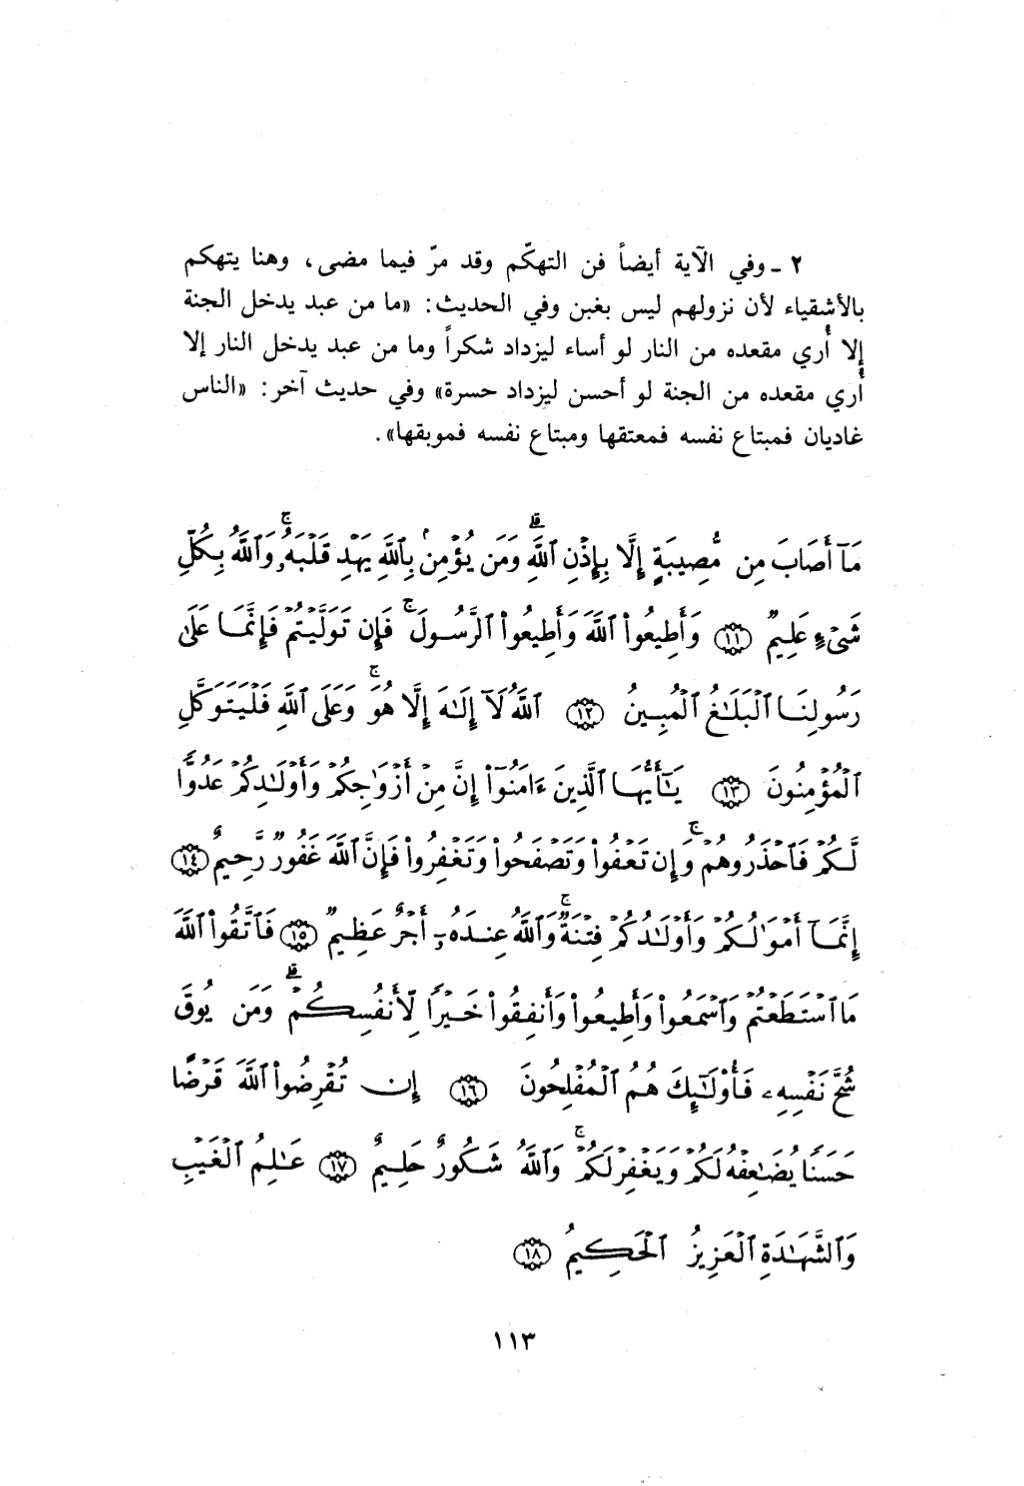 ٢ ـ وفي الآية أيضاً فن التهكّم وقد مرّ فيما مضى، وهنا يتهكم
بالأشقياء لأن نزولهم ليس بغبن وفي الحديث: «ما من عبد يدخل الجنة
إلا أُري مقعده من النار لو أساء ليزداد شكراً وما من عبد يدخل النار إلا
أُري مقعده من الجنة لو أحسن ليزداد حسرة» وفي حديث آخر: «الناس
غاديان فمبتاع نفسه فمعتقها ومبتاع نفسه فموبقها».
مَآ أَصَابَ مِن مُّصِيبَةٍ إِلَّا بِإِذْنِ ٱللَّهِ ۗ وَمَن يُؤْمِنۢ بِٱللَّهِ يَهْدِ قَلْبَهُۥ ۚ وَٱللَّهُ بِكُلِّ
شَىْءٍ عَلِيمٌ ۝١١ وَأَطِيعُوا۟ ٱللَّهَ وَأَطِيعُوا۟ ٱلرَّسُولَ ۚ فَإِن تَوَلَّيْتُمْ فَإِنَّمَا عَلَىٰ
رَسُولِنَا ٱلْبَلَـٰغُ ٱلْمُبِينُ ۝١٢ ٱللَّهُ لَآ إِلَـٰهَ إِلَّا هُوَ ۚ وَعَلَى ٱللَّهِ فَلْيَتَوَكَّلِ
ٱلْمُؤْمِنُونَ ۝١٣ يَـٰٓأَيُّهَا ٱلَّذِينَ ءَامَنُوٓا۟ إِنَّ مِنْ أَزْوَٰجِكُمْ وَأَوْلَـٰدِكُمْ عَدُوًّا
لَّكُمْ فَٱحْذَرُوهُمْ ۚ وَإِن تَعْفُوا۟ وَتَصْفَحُوا۟ وَتَغْفِرُوا۟ فَإِنَّ ٱللَّهَ غَفُورٌ رَّحِيمٌ ۝١٤
إِنَّمَآ أَمْوَٰلُكُمْ وَأَوْلَـٰدُكُمْ فِتْنَةٌ ۚ وَٱللَّهُ عِندَهُۥٓ أَجْرٌ عَظِيمٌ ۝١٥ فَٱتَّقُوا۟ ٱللَّهَ
مَا ٱسْتَطَعْتُمْ وَٱسْمَعُوا۟ وَأَطِيعُوا۟ وَأَنفِقُوا۟ خَيْرًا لِّأَنفُسِكُمْ ۗ وَمَن يُوقَ
شُحَّ نَفْسِهِۦ فَأُو۟لَـٰٓئِكَ هُمُ ٱلْمُفْلِحُونَ ۝١٦ إِن تُقْرِضُوا۟ ٱللَّهَ قَرْضًا
حَسَنًا يُضَـٰعِفْهُ لَكُمْ وَيَغْفِرْ لَكُمْ ۚ وَٱللَّهُ شَكُورٌ حَلِيمٌ ۝١٧ عَـٰلِمُ ٱلْغَيْبِ
وَٱلشَّهَـٰدَةِ ٱلْعَزِيزُ ٱلْحَكِيمُ ۝١٨
١١٣